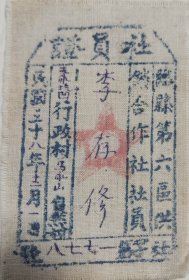 社員證
縣第六區供
銷合作社社員
李存修
行政村
民國三十八年十二月一日
一七七八號